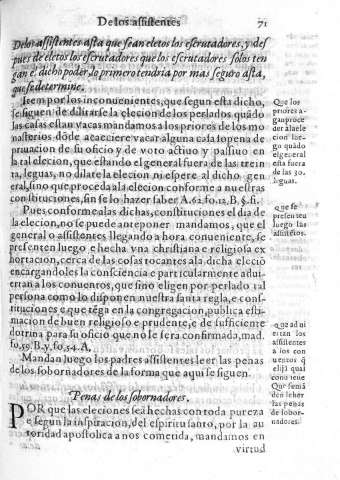 De los assistentes 71
Delos assistentes asta que sean eletos los escrutadores, y des
pues de eletos los escrutadores que los escrutadores solos ten
gan el dicho poder, lo primero tendria por mas seguro asta,
que se determine.
Item por los inconuenientes, que segun esta dicho,
se siguen de dilatarse la elecion de los perlados quãdo
las casas estan vacas mandamos a los priores de los mo
nasterios dõde acaeciere vacar alguna casa so pena de
priuacion de su oficio y de voto actiuo y passiuo en
la tal elecion, que estando el general fuera de las trein
ta, leguas, no dilate la elecion ni espere al dicho gen
eral, sino que proceda ala elecion conforme a nuestras
constituciones, sin se lo hazer saber A. 62. fo. 12. B. §. fi.
Pues conforme alas dichas, constituciones el dia de
la elecion, no se puede anteponer mandamos, que el
general o assistentes llegando a hora conueniente, se
presenten luego e hecha vna christiana e religiosa ex
hortacion, cerca de las cosas tocantes ala, dicha eleciõ
encargandoles la consciencia e particularmente adui-
ertan a los conuentos, que sino eligen por perlado tal
persona como lo disponen nuestra santa regla, e cons-
tituciones e que tẽga en la congregacion, publica esti-
macion de buen religioso e prudente, e de suficiente
dotrina para su oficio que no le sera confirmada, mad.
fo. 59. B. y, fo, 54. A.
Mandan luego los padres assistentes leer las penas
de los sobornadores de la forma que aqui se siguen.
Penas de los sobornadores.
POR que las eleciones seã hechas con toda pureza
e segun la inspiracion, del espiritu santo, por la au
toridad apostolica a nos cometida, mandamos en
virtud
Que los
priores a-
gan proce
der ala ele
cion lue-
go quãdo
el general
esta fuera
de las 30.
leguas.
Que se
presenten
luego las
assistẽtes.
Que adui
ertan los
assistentes
a los con
uentos q̃
elijã qual
conuiene
Que
den leher
las penas
de sobor-
nadores.